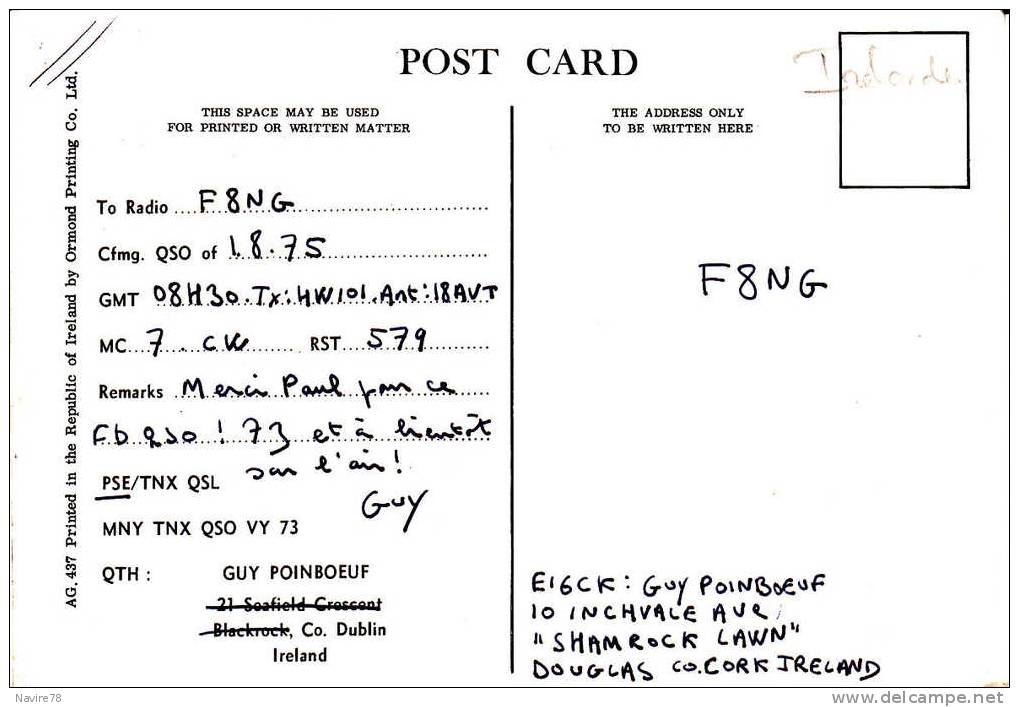 POST CARD
Irelande.
THIS SPACE MAY BE USED
FOR PRINTED OR WRITTEN MATTER
THE ADDRESS ONLY
TO BE WRITTEN HERE
To Radio ....F8NG....
Cfmg. QSO of 1.8.75
GMT 08H30.Tx:HW101.Ant:18AVT
MC...7. CW RST...579
Remarks Merci Paul pour ce
FB QSO ! 73 et à bientôt
sur l'air!
PSE/TNX QSL
Guy
MNY TNX QSO VY 73
QTH : GUY POINBOEUF
21 Seafield Crescent
Blackrock, Co. Dublin
Ireland
AG. 437 Printed in the Republic of Ireland by Ormond Printing Co. Ltd.
F8NG
EI6CK: GUY POINBOEUF
10 INCHVALE AVE,
"SHAMROCK LAWN"
DOUGLAS CO. CORK IRELAND
Navire78
delcampe.net